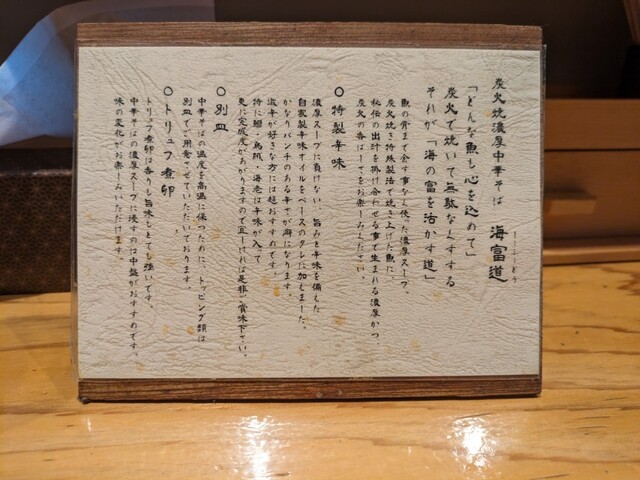 炭火焼濃厚中華そば 海富道
「どんな魚も心を込めて」
炭火で焼いて無駄なくすする
それが「海の富を活かす道」
魚の骨まで余す事なく使った濃厚スープ、
炭火焼き特殊製法で焼き上げた魚に
秘伝の出汁を掛け合わせる事で生まれる濃厚かつ、
炭火の香ばしさをお楽しみください。
○ 特製辛味
濃厚スープに負けない、旨みと辛味を備えた
自家製辛味オイルをベースのタレに加えました。
かなりパンチのある辛さが癖になります。
激辛が好きな方には超おすすめです。
特に鯛・烏賊・海老は辛味が入って
更に完成度があがりますので宜しければ是非ご賞味下さい。
○ 別皿
中華そばの温度を高温に保つために、トッピング類は
別皿でご用意させていただいております。
○ トリュフ煮卵
トリュフ煮卵は香りも旨味もとても強いです。
中華そばの濃厚スープに浸すのは中盤がおすすめです。
味の変化がお楽しみいただけます。